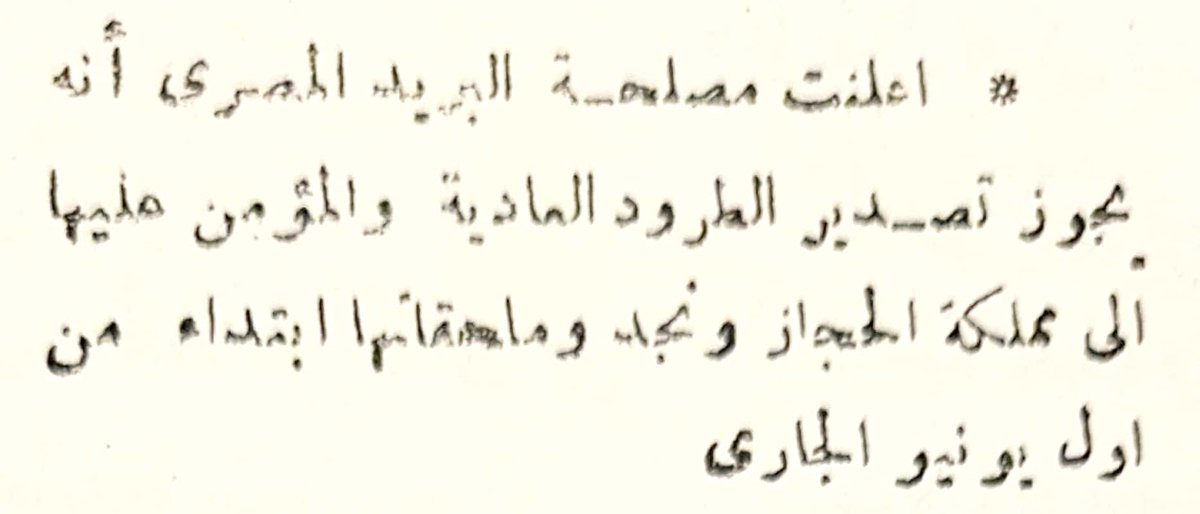 * اعلنت مصلحة البريد المصرى أنه
يجوز تصدير الطرود العادية والمؤمن عليها
الى مملكة الحجاز ونجد وملحقاتها ابتداء من
اول يونيو الجارى